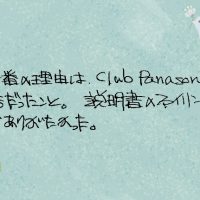 番の理由は、Club Panason
だったこと。説明書のファイリン
ありがたかった。